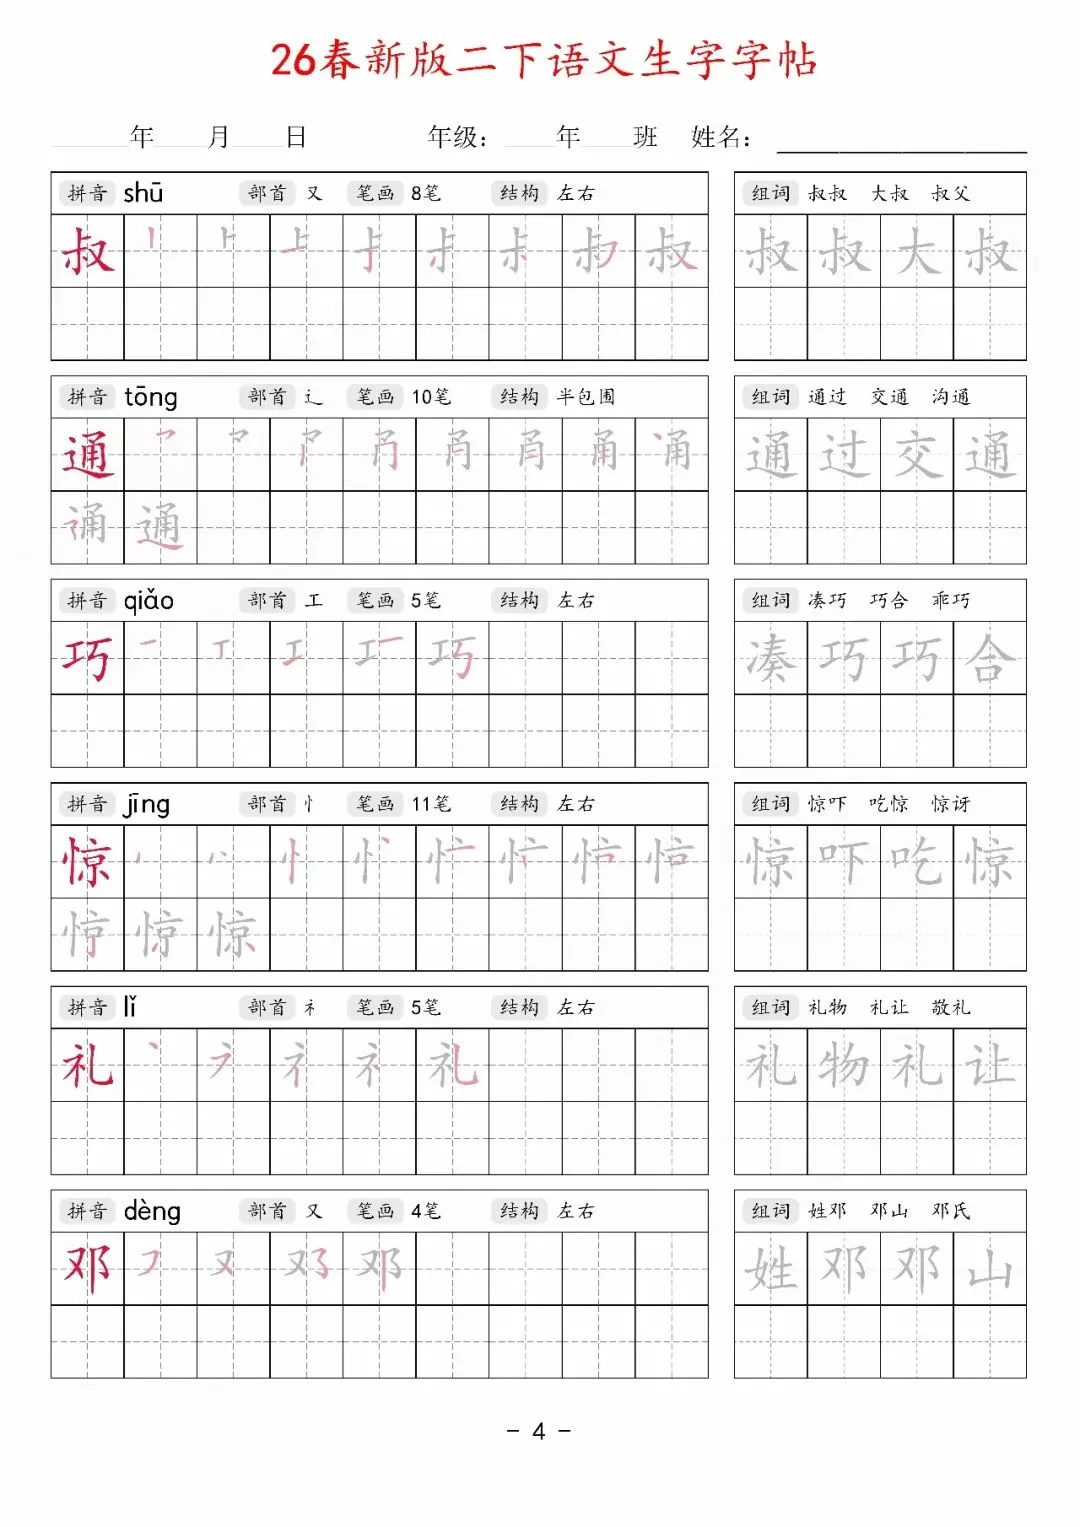 26春新版二下语文生字字帖
年 月 日 年级： 年 班 姓名：
拼音 shū 部首 又 笔画 8笔 结构 左右 组词 叔叔 大叔 叔父
叔 叔 叔 叔 大 叔
拼音 tōng 部首 辶 笔画 10笔 结构 半包围 组词 通过 交通 沟通
通 甬 通 过 交 通
诵 通
拼音 qiǎo 部首 工 笔画 5笔 结构 左右 组词 凑巧 巧合 乖巧
巧 一 丅 工 巧 凑 巧 巧 合
拼音 jīng 部首 忄 笔画 11笔 结构 左右 组词 惊吓 吃惊 惊讶
惊 忄 惊 吓 吃 惊
惊
拼音 lǐ 部首 礻 笔画 5笔 结构 左右 组词 礼物 礼让 敬礼
礼 丶 礻 礼 礼 物 礼 让
拼音 dèng 部首 又 笔画 4笔 结构 左右 组词 姓邓 邓山 邓氏
邓 又 邓 姓 邓 邓 山
- 4 -